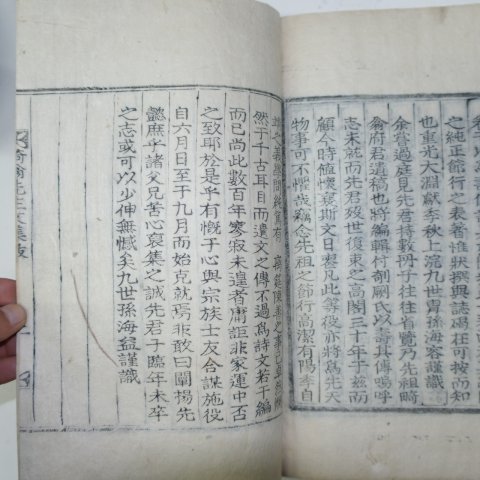 之純正節行之表著惟狀撰與誌碣在可按而知
也重光大淵獻季秋上浣九世胄孫海容謹識
余嘗過庭見先君持數冊子往往省覽乃先祖畸
翁府君遺稿也將編輯付剞劂氏以壽其傳嗚呼
志未就而先君歿世復束之高閣三十年于玆而
顧今時値懷襄斯文日零凡此等役亦將爲先天
物事可不懼哉竊念先祖之節行高潔有陽李自
然于千古耳目而遺文之傳不過爲詩文若干編
而已尙此數百年寥寂未遑者庸詎非家運中否
之致耶於是乎有慨于心與宗族士友合謀施役
自六月日至于九月而始克就焉非敢曰闡揚先
懿庶乎諸父兄苦心裒集之誠先君子臨年未卒
之志或可以少伸無憾矣九世孫海益謹識
畸翁先生文集跋